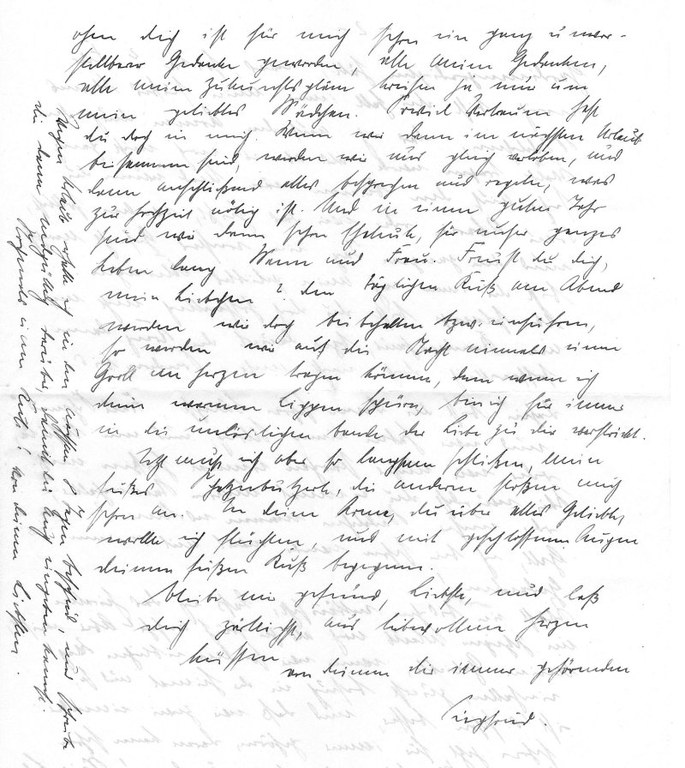 ohne dich ist für mich schon ein ganz unvor-
stellbarer Gedanke geworden, alle meine Gedanken,
alle meine Zukunftspläne kreisen ja nur um
mein geliebtes Mädchen. Soviel Vertrauen hast
du doch in mich. Wenn wir dann im nächsten Urlaub
beisammen sind, werden wir uns gleich verloben, und
dann anschließend alles besprechen und regeln, was
zur Hochzeit nötig ist. Und in einem guten Jahr
sind wir dann schon Eheleute, für unser ganzes
Leben lang Mann und Frau. Freust du dich,
mein Liebchen? den täglichen Kuß am Abend
werden wir doch beibehalten bzw. einführen,
so werden wir auf die Nacht niemals einen
Groll im Herzen tragen können, denn wenn ich
deine warmen Lippen spüre, bin ich für immer
in die unlöslichen Bande der Liebe zu dir verstrickt.
Jetzt muß ich aber so langsam schließen, mein
süßes, die anderen stoßen mich
schon an. In deine Arme, du über alles Geliebte,
möchte ich flüchten, und mit geschlossenen Augen
deinem süßen Kuß begegnen.
Bleibe mir gesund, Liebste, und laß
dich zärtlichst, aus liebevollem Herzen
küssen
von deinem dir immer gehörenden
Siegfried.
Wegen Urlaub erhalte ich in den nächsten 8 Tagen Bescheid, und schreibe
dir dann, damit du einig
in Kuß! von deinem Liebsten.